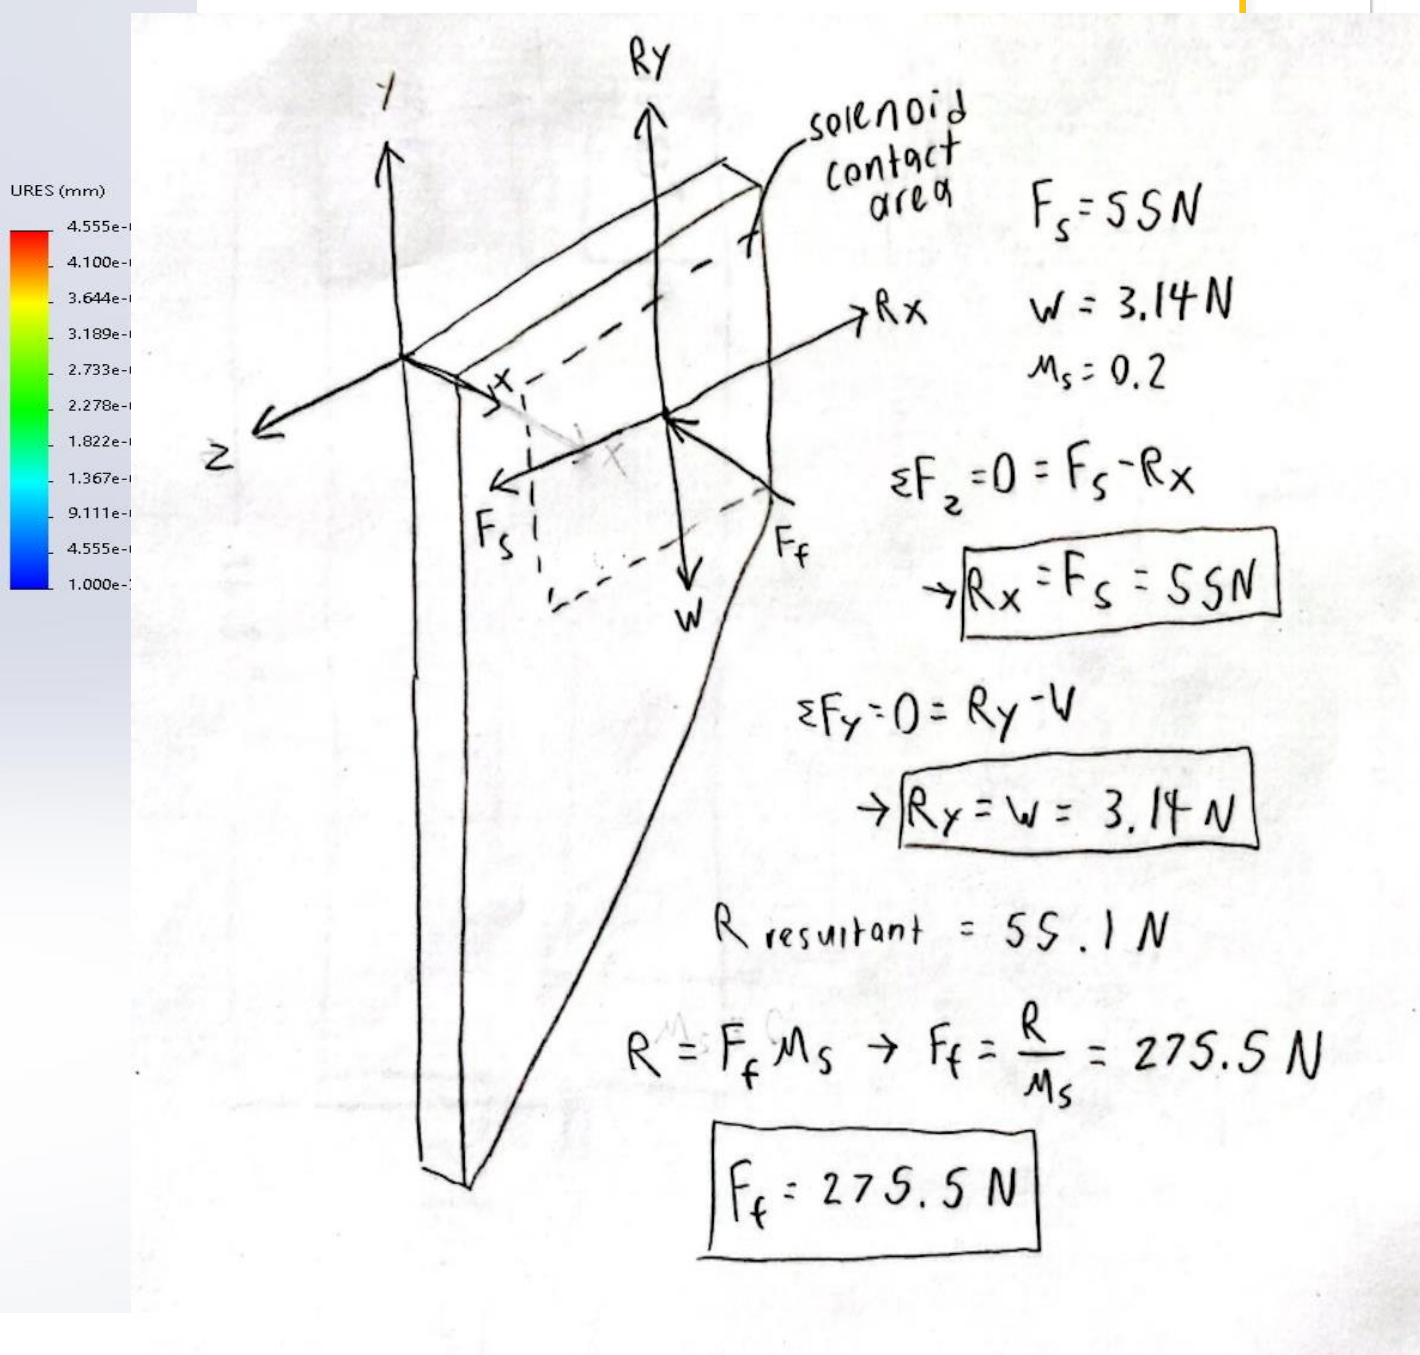 URES (mm)
4.555e-
4.100e-
3.644e-
3.189e-
2.733e-
2.278e-
1.822e-
1.367e-
9.111e-
4.555e-
1.000e-
Y
Ry
solenoid
contact
area
Fs = 55N
Rx
W = 3.14N
μs = 0.2
x
z
x
ΣFz = 0 = Fs - Rx
Fs
Ff
→ Rx = Fs = 55N
W
ΣFy = 0 = Ry - W
→ Ry = W = 3.14 N
R resultant = 55.1 N
R = Ff μs → Ff = R/μs = 275.5 N
Ff = 275.5 N